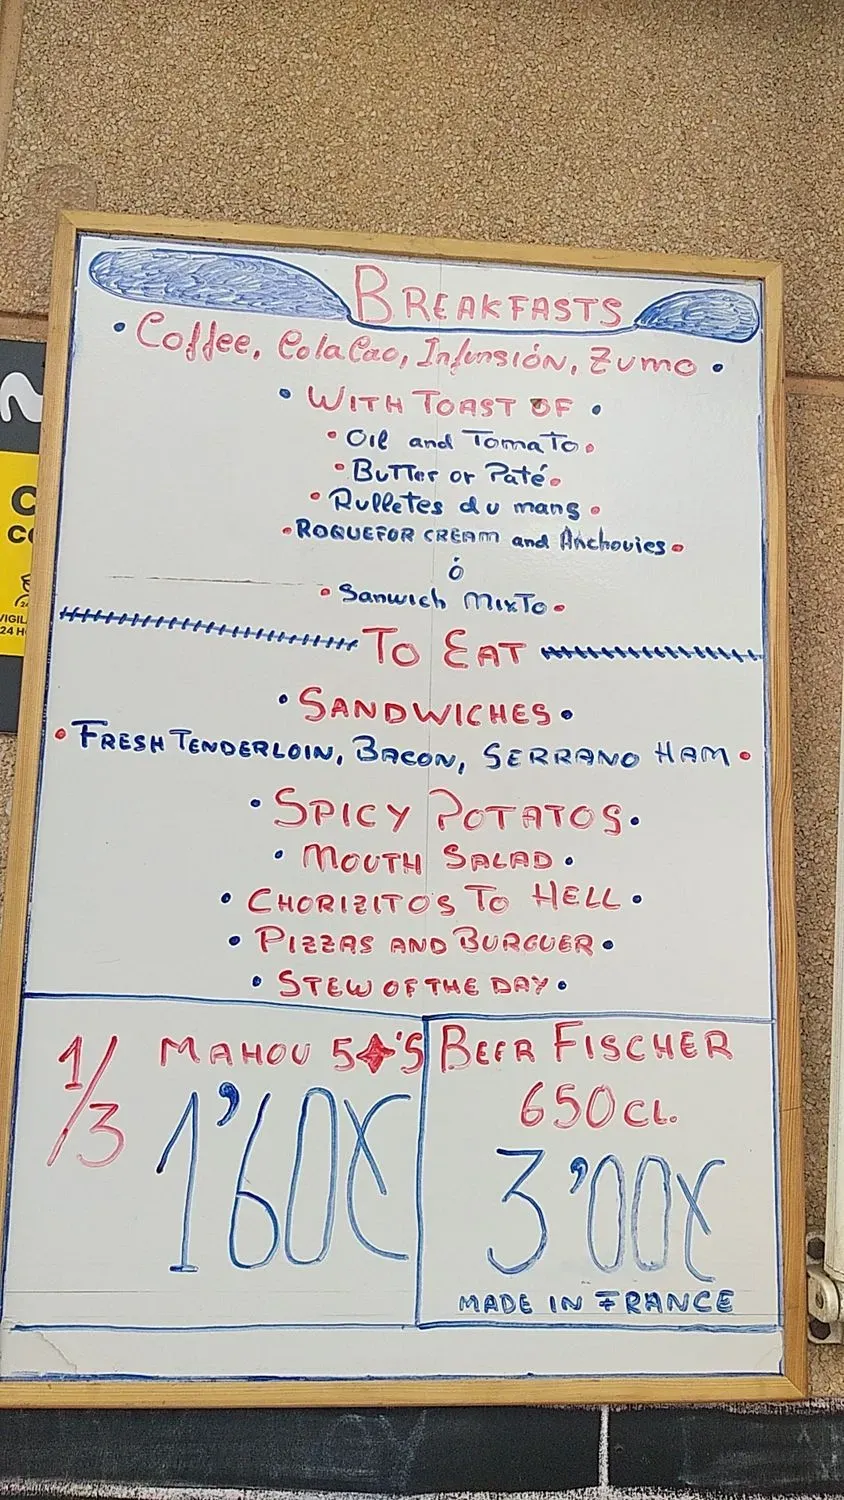 BREAKFASTS
• Coffee, ColaCao, Infunsión, Zumo •
• WITH TOAST OF •
• OIL and TomaTo •
• BuTTer or Paté •
• Rulletes du mans •
• ROQUEFOR CREAM and Anchovies •
ó
• Sanwich MixTo •
TO EAT
• SANDWICHES •
• FRESH TENDERLOIN, BACON, SERRANO HAM •
• SPICY POTATOS •
• MOUTH SALAD •
• CHORIZITOS TO HELL •
• PIZZAS AND BURGUER •
• STEW OF THE DAY •
1/3 MAHOU 5✦'S
1'60€
BEER FISCHER
650CL.
3'00€
MADE IN FRANCE
24 H